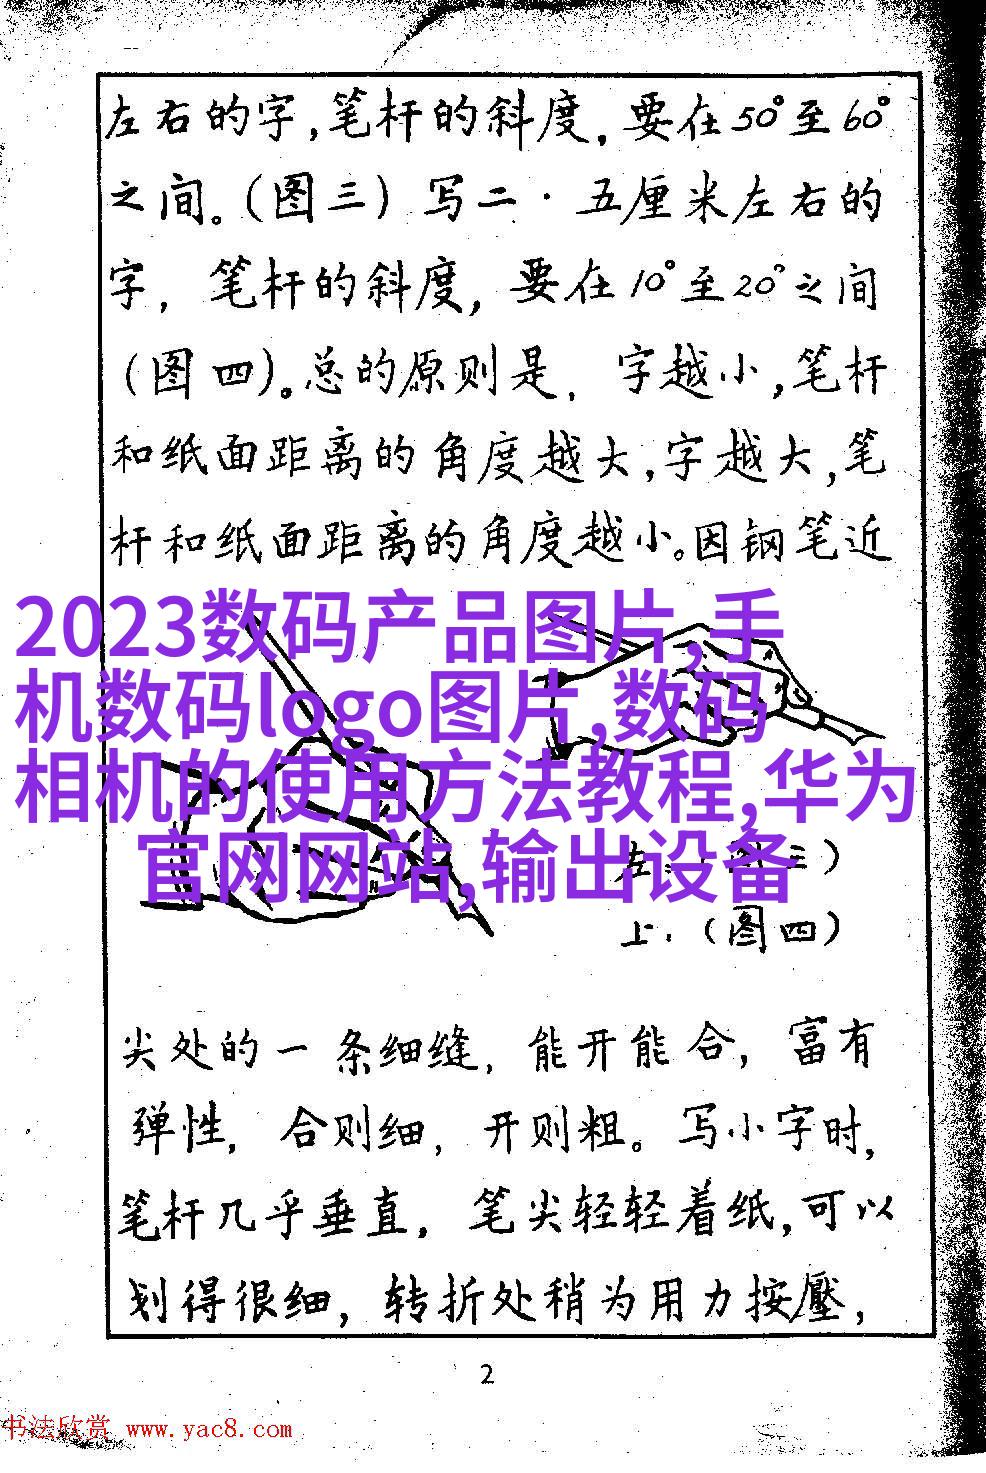 左右的字,笔杆的斜度,要在50°至60°
之间。(图三)写二·五厘米左右的
字,笔杆的斜度,要在10°至20°之间
(图四)。总的原则是,字越小,笔杆
和纸面距离的角度越大,字越大,笔
杆和纸面距离的角度越小。因钢笔近
2023数码产品图片,手
机数码logo图片,数码
相机的使用方法教程,华为
官网网站,输出设备
上.(图四)
尖处的一条细缝,能开能合,富有
弹性,合则细,开则粗。写小字时,
笔杆几乎垂直,笔尖轻轻着纸,可以
划得很细,转折处稍为用力按壓,
2
书法欣赏 www.yac8.com